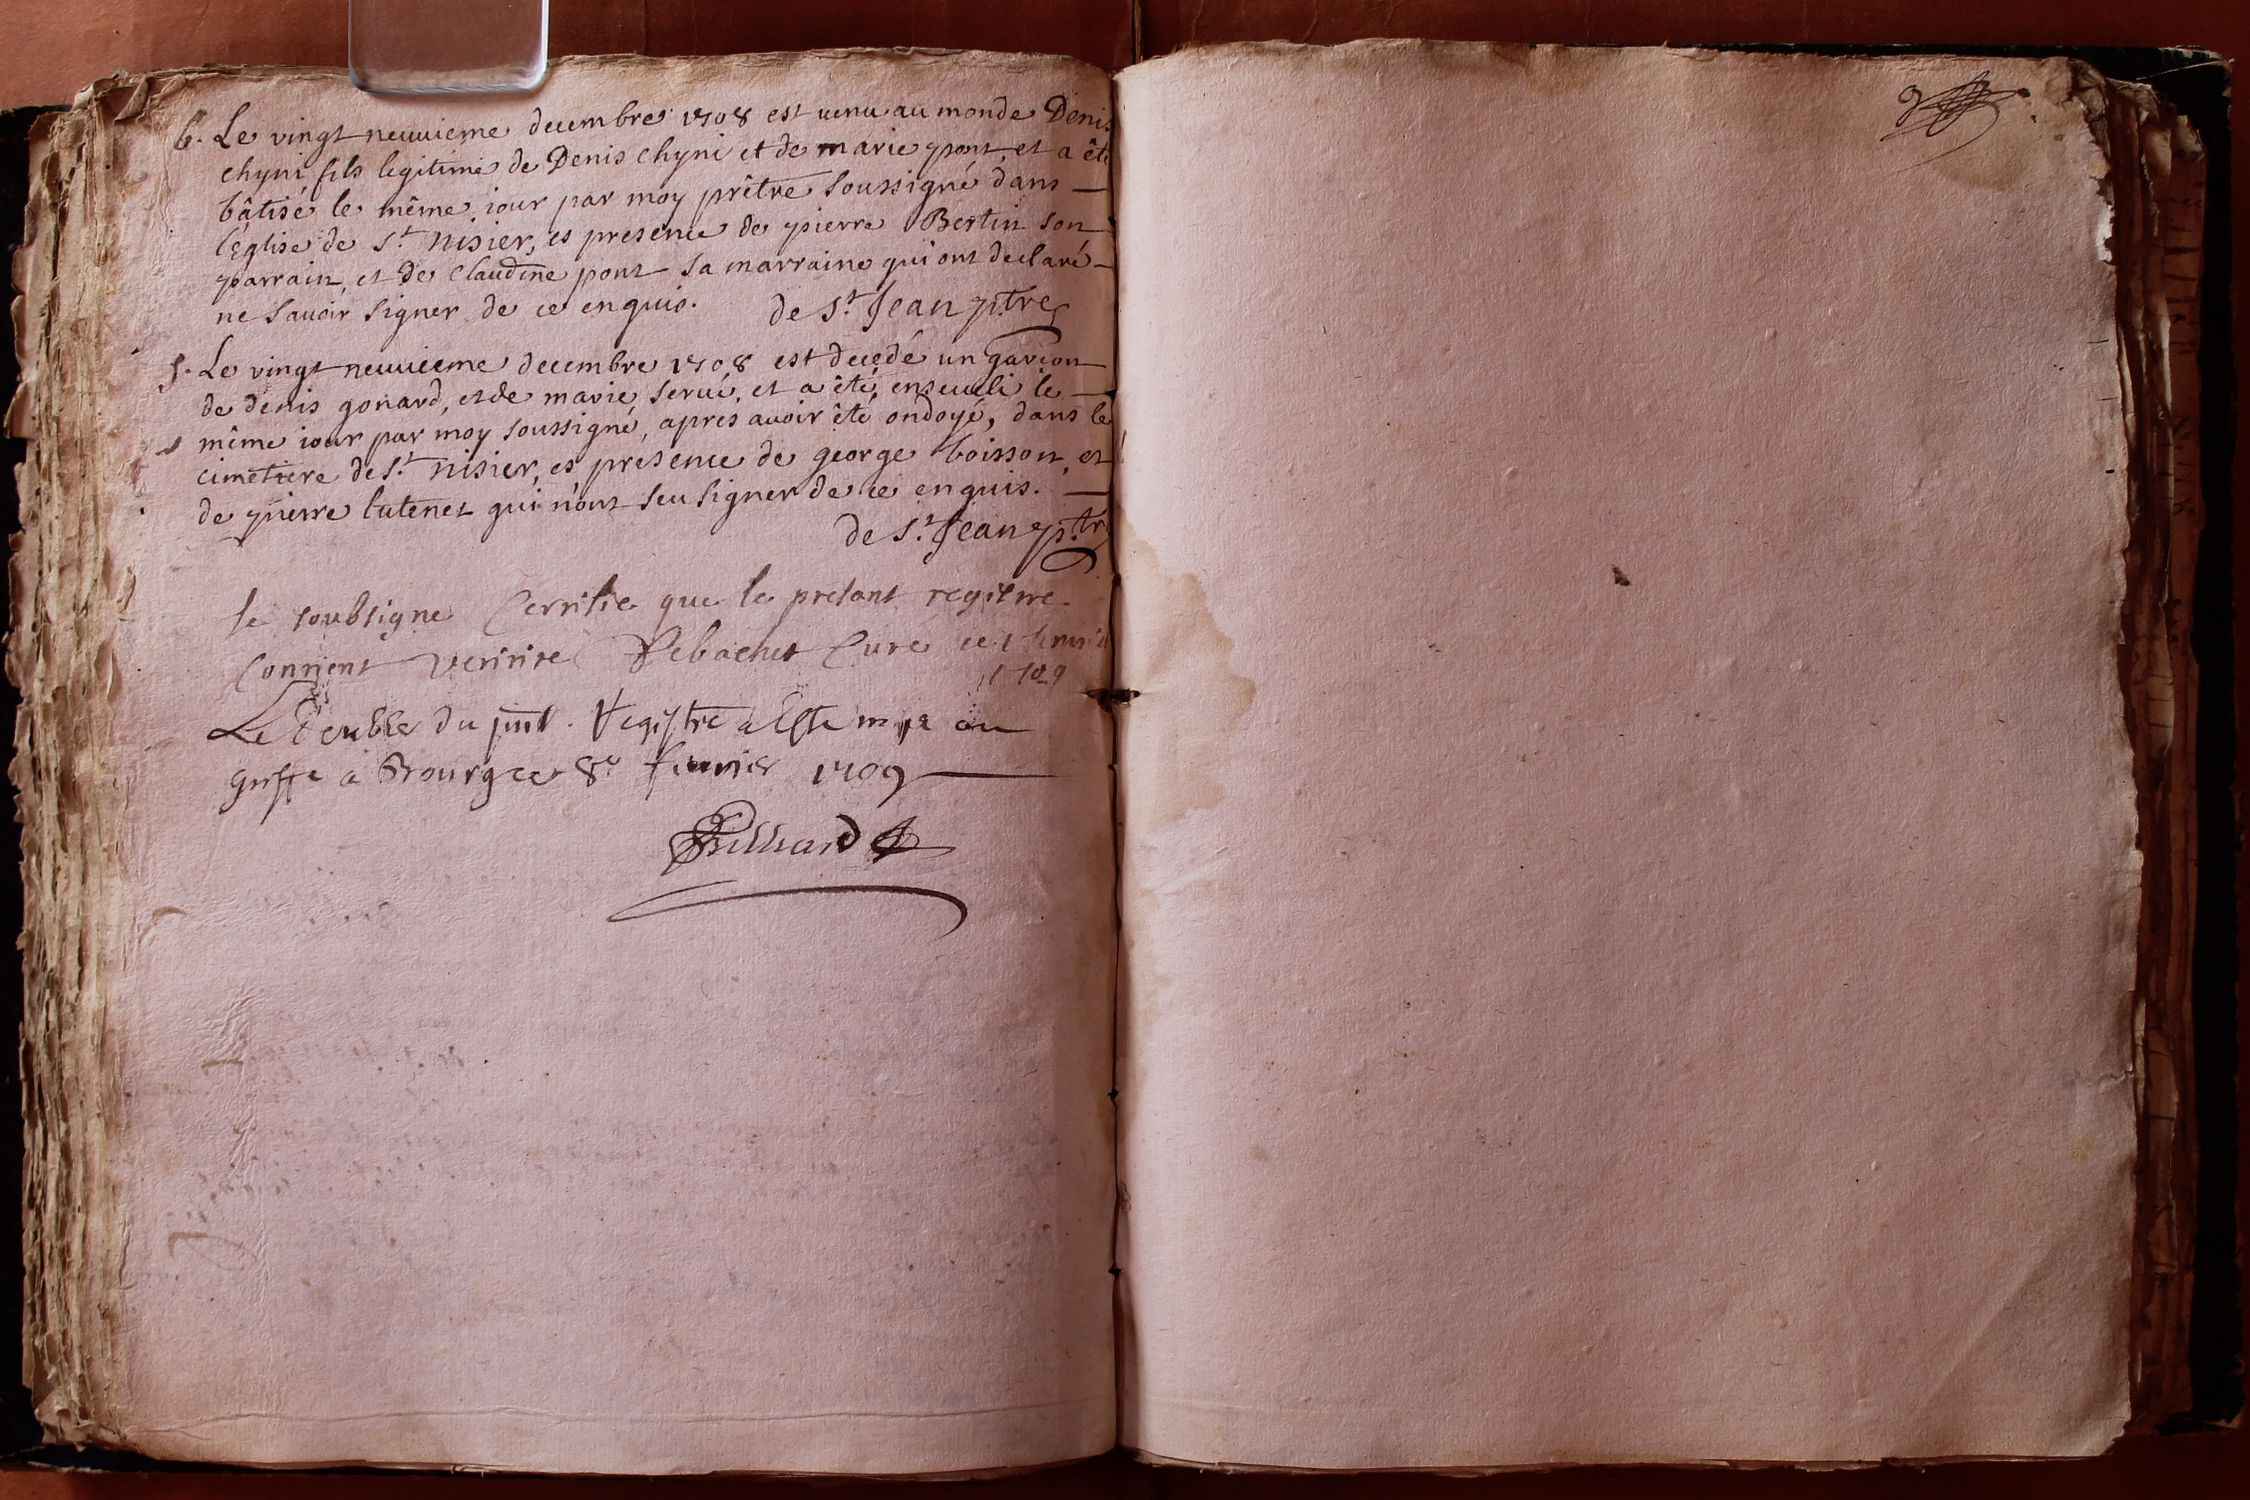 b. Le vingt neuvieme decembre 1708 est venu au monde Denis
chyni fils legitime de Denis chyni et de marie pont, et a êté
bâtisé le même iour par moy prêtre soussigné dans —
l'église de St nisier, es presence de pierre Bertin son
parrain, et de Claudine pont sa marraine qui ont declaré —
ne sauoir signer de ce enquis. de St Jean ptre
s. Le vingt neuvieeme decembre 1708 est decedé un garçon
de denis gonard, et de marie servé, et a êté enseueli le —
même iour par moy soussigné, apres auoir êté ondoyé, dans le
cimetiere de St nisier, es presence de george boisson, et
de pierre lutenet qui n'ont seu signer de ce enquis. —
de St Jean ptr
Je soubsigne Certifie que le presant registre
Contient veririte Curé ce 1
1709
Le double du pnt. Registre a Esté mis au
greffe a Bourg ce 8e feuurier 1709 —